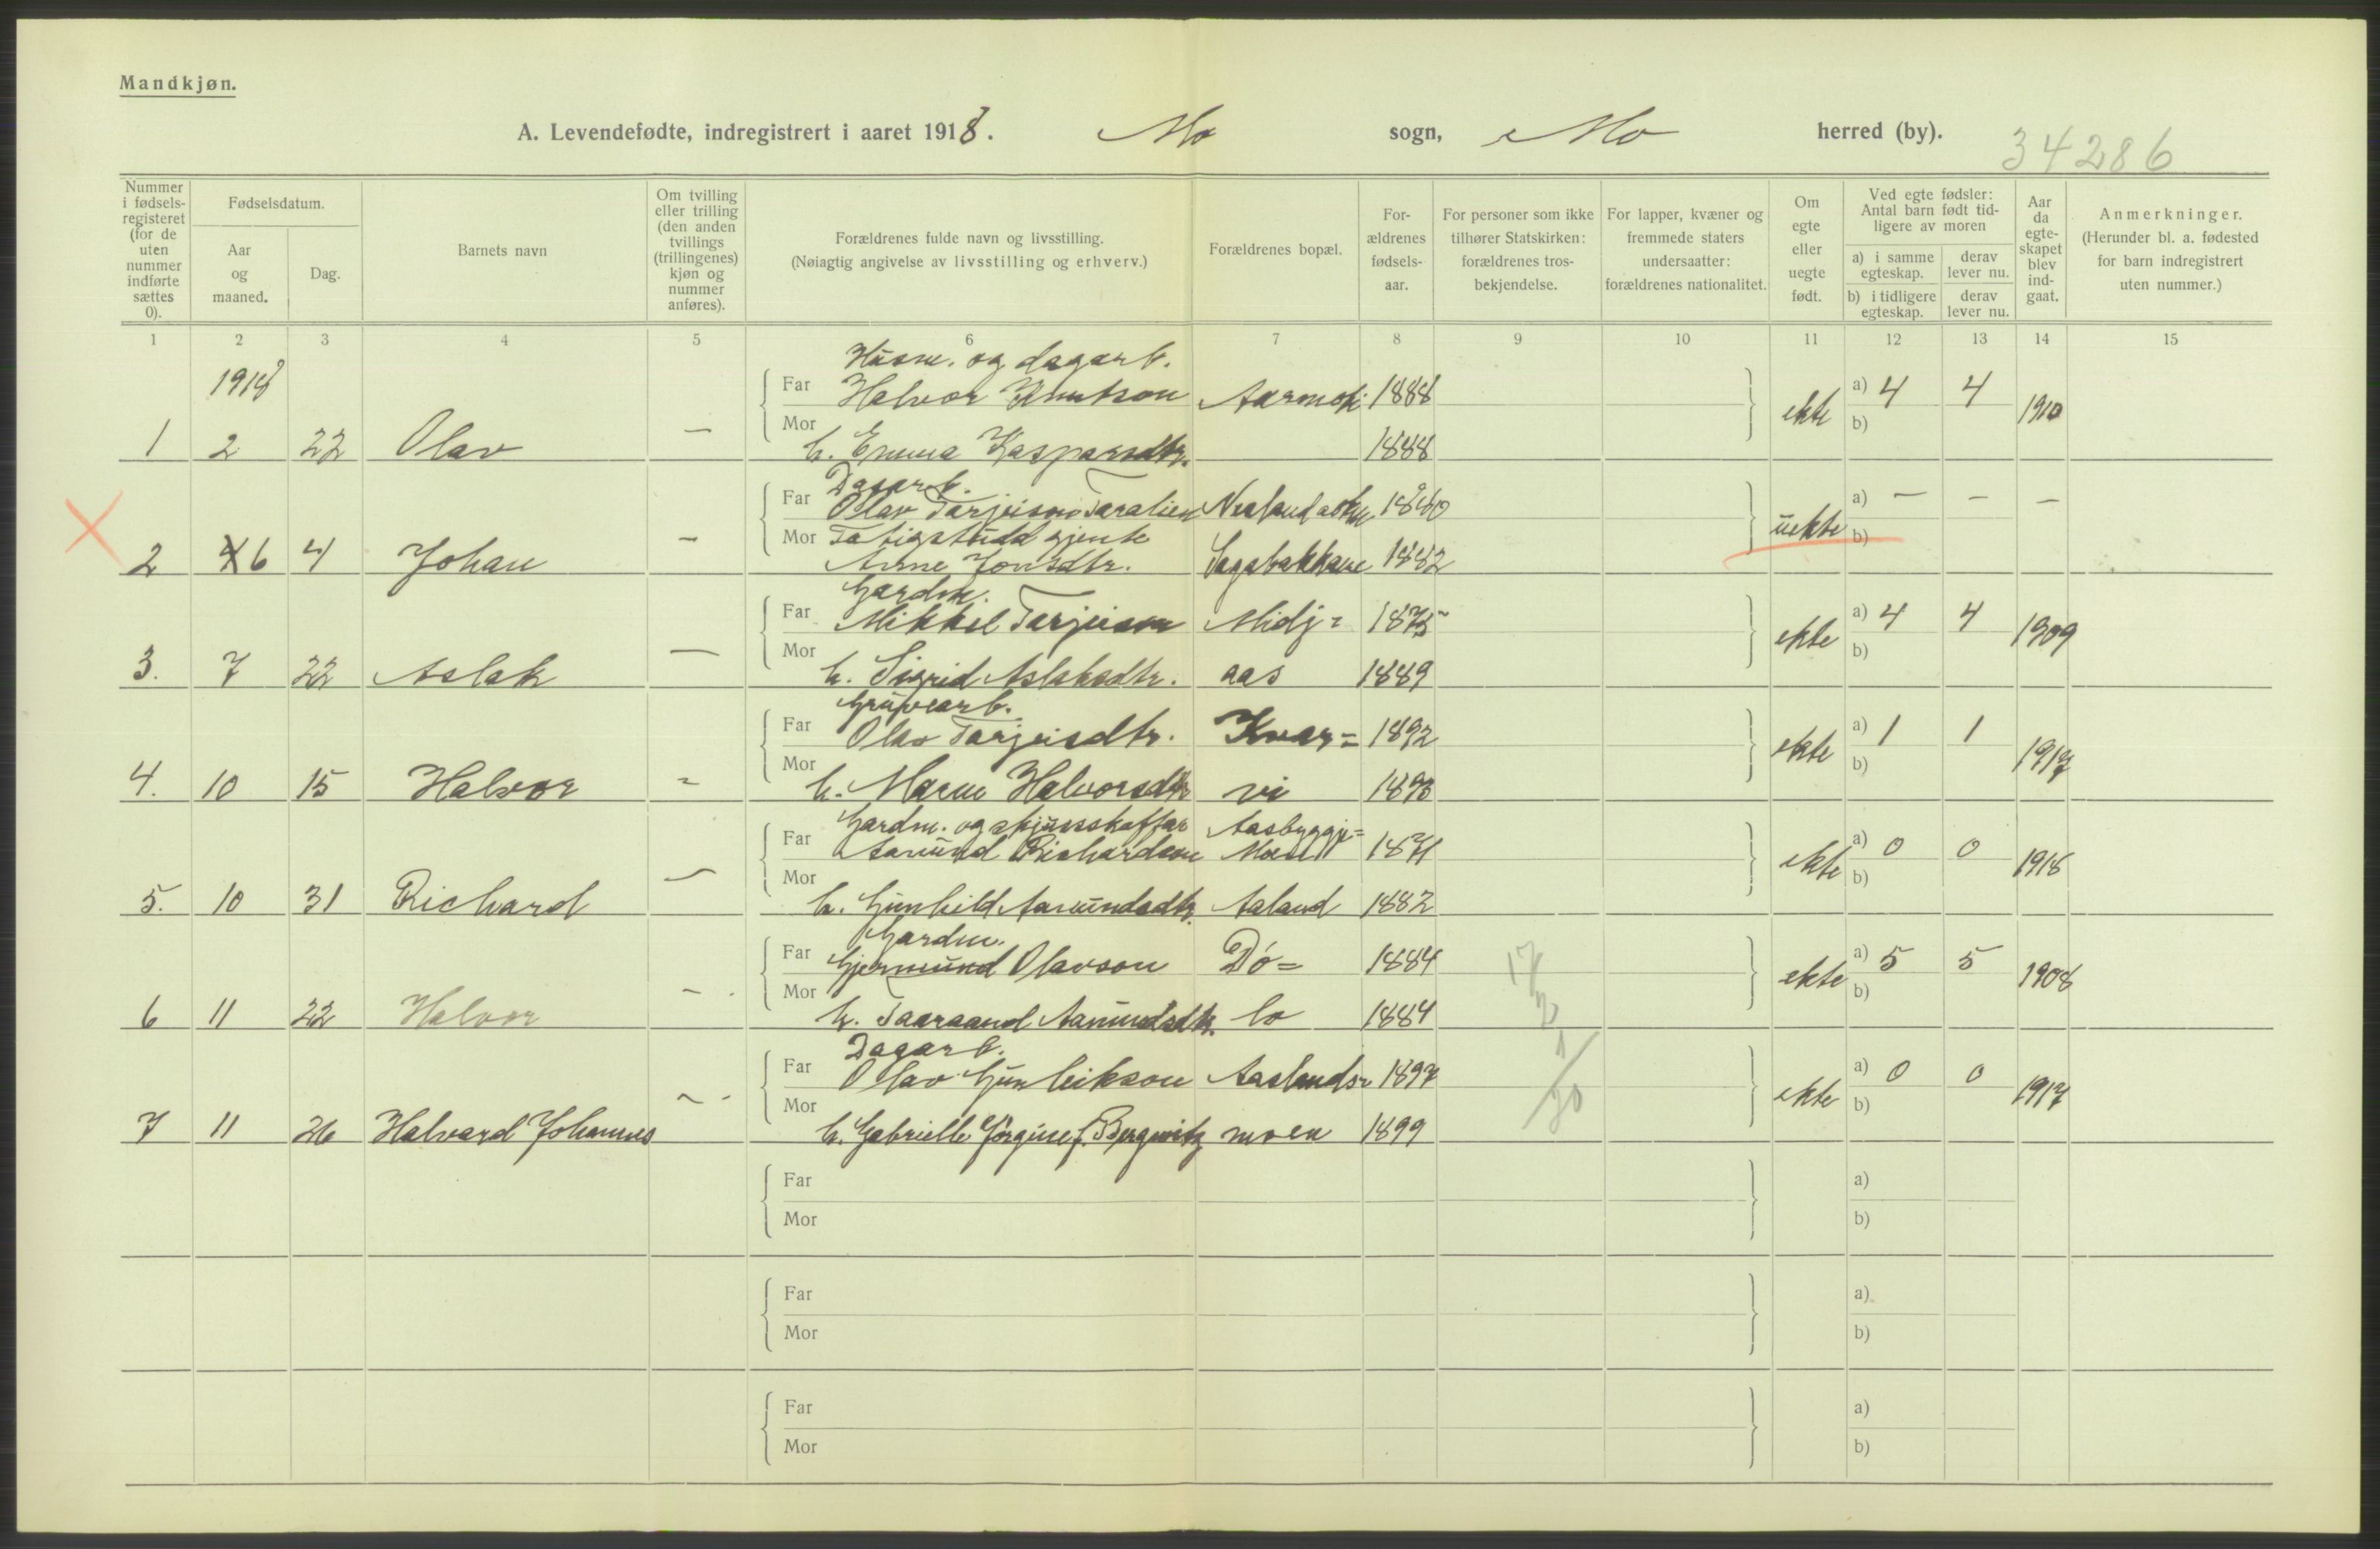 Mandkjøn.
A. Levendefødte, indregistrert i aaret 1918. Mo sogn, Mo herred (by).
34286
Nummer i fødsels-registeret (for de uten nummer indførte sættes 0).
Fødselsdatum.
Aar og maaned.
Dag.
Barnets navn
Om tvilling eller trilling (den anden tvillings (trillingenes) kjøn og nummer anføres).
Forældrenes fulde navn og livsstilling.
(Nøiagtig angivelse av livsstilling og erhverv.)
Forældrenes bopæl.
For-ældrenes fødsels-aar.
For personer som ikke tilhører Statskirken: forældrenes tros-bekjendelse.
For lapper, kvæner og fremmede staters undersaatter: forældrenes nationalitet.
Om egte eller uegte født.
Ved egte fødsler: Antal barn født tid-ligere av moren
a) i samme egteskap. derav lever nu.
b) i tidligere egteskap. derav lever nu.
Aar da egte-skapet blev ind-gaat.
Anmerkninger.
(Herunder bl. a. fødested for barn indregistrert uten nummer.)
1 2 3 4 5 6 7 8 9 10 11 12 13 14 15
1918
Husm. og dagarb.
Far Halvor Knutson Aarmote 1888 a) 4 4
ekte 1910
Mor b)
1 2 22 Olav — h. Emma Kaspersdtr. 1888
Dagarb.
Far Olav Tarjeison Taralien 1880 a) — — —
Mor Fatigstudd gjente uekte b)
2 6 4 Johan — Anne Jonsdtr. Sagabakkane 1882
Gardm.
Far Mikkel Tarjeison Midj= 1875 a) 4 4
ekte 1909
Mor b)
3. 7 22 Aslak — h. Sigrid Aslaksdtr. aas 1889
Gruvearb.
Far Olav Tarjeisdtr. Kvar= 1892 a) 1 1
ekte 1917
Mor b)
4. 10 15 Halvor = h. Maren Halvorsdtr vi 1893
Gardm. og skjussskaffar Aasbyggje=
Far Aamund Richardson Moen 1871 a) 0 0
ekte 1918
Mor b)
5. 10 31 Richard — h. Gunhild Aamundsdtr. Aaland 1882
Gardm.
Far Gjermund Olavson Dö= 1884 a) 5 5
17/
ekte 1908
Mor b)
6 11 22 Halvor — . h. Taaraand Aamundsdtr. lo 1884
Dagarb.
Far Olav Gunleikson Aaslands= 1897 a) 0 0
ekte 1917
Mor b)
7 11 26 Halvard Johannes — - h. Gabrielle Jörgine f. Bergwitz moen 1899
20
Far a)
Mor b)
Far a)
Mor b)
Far a)
Mor b)